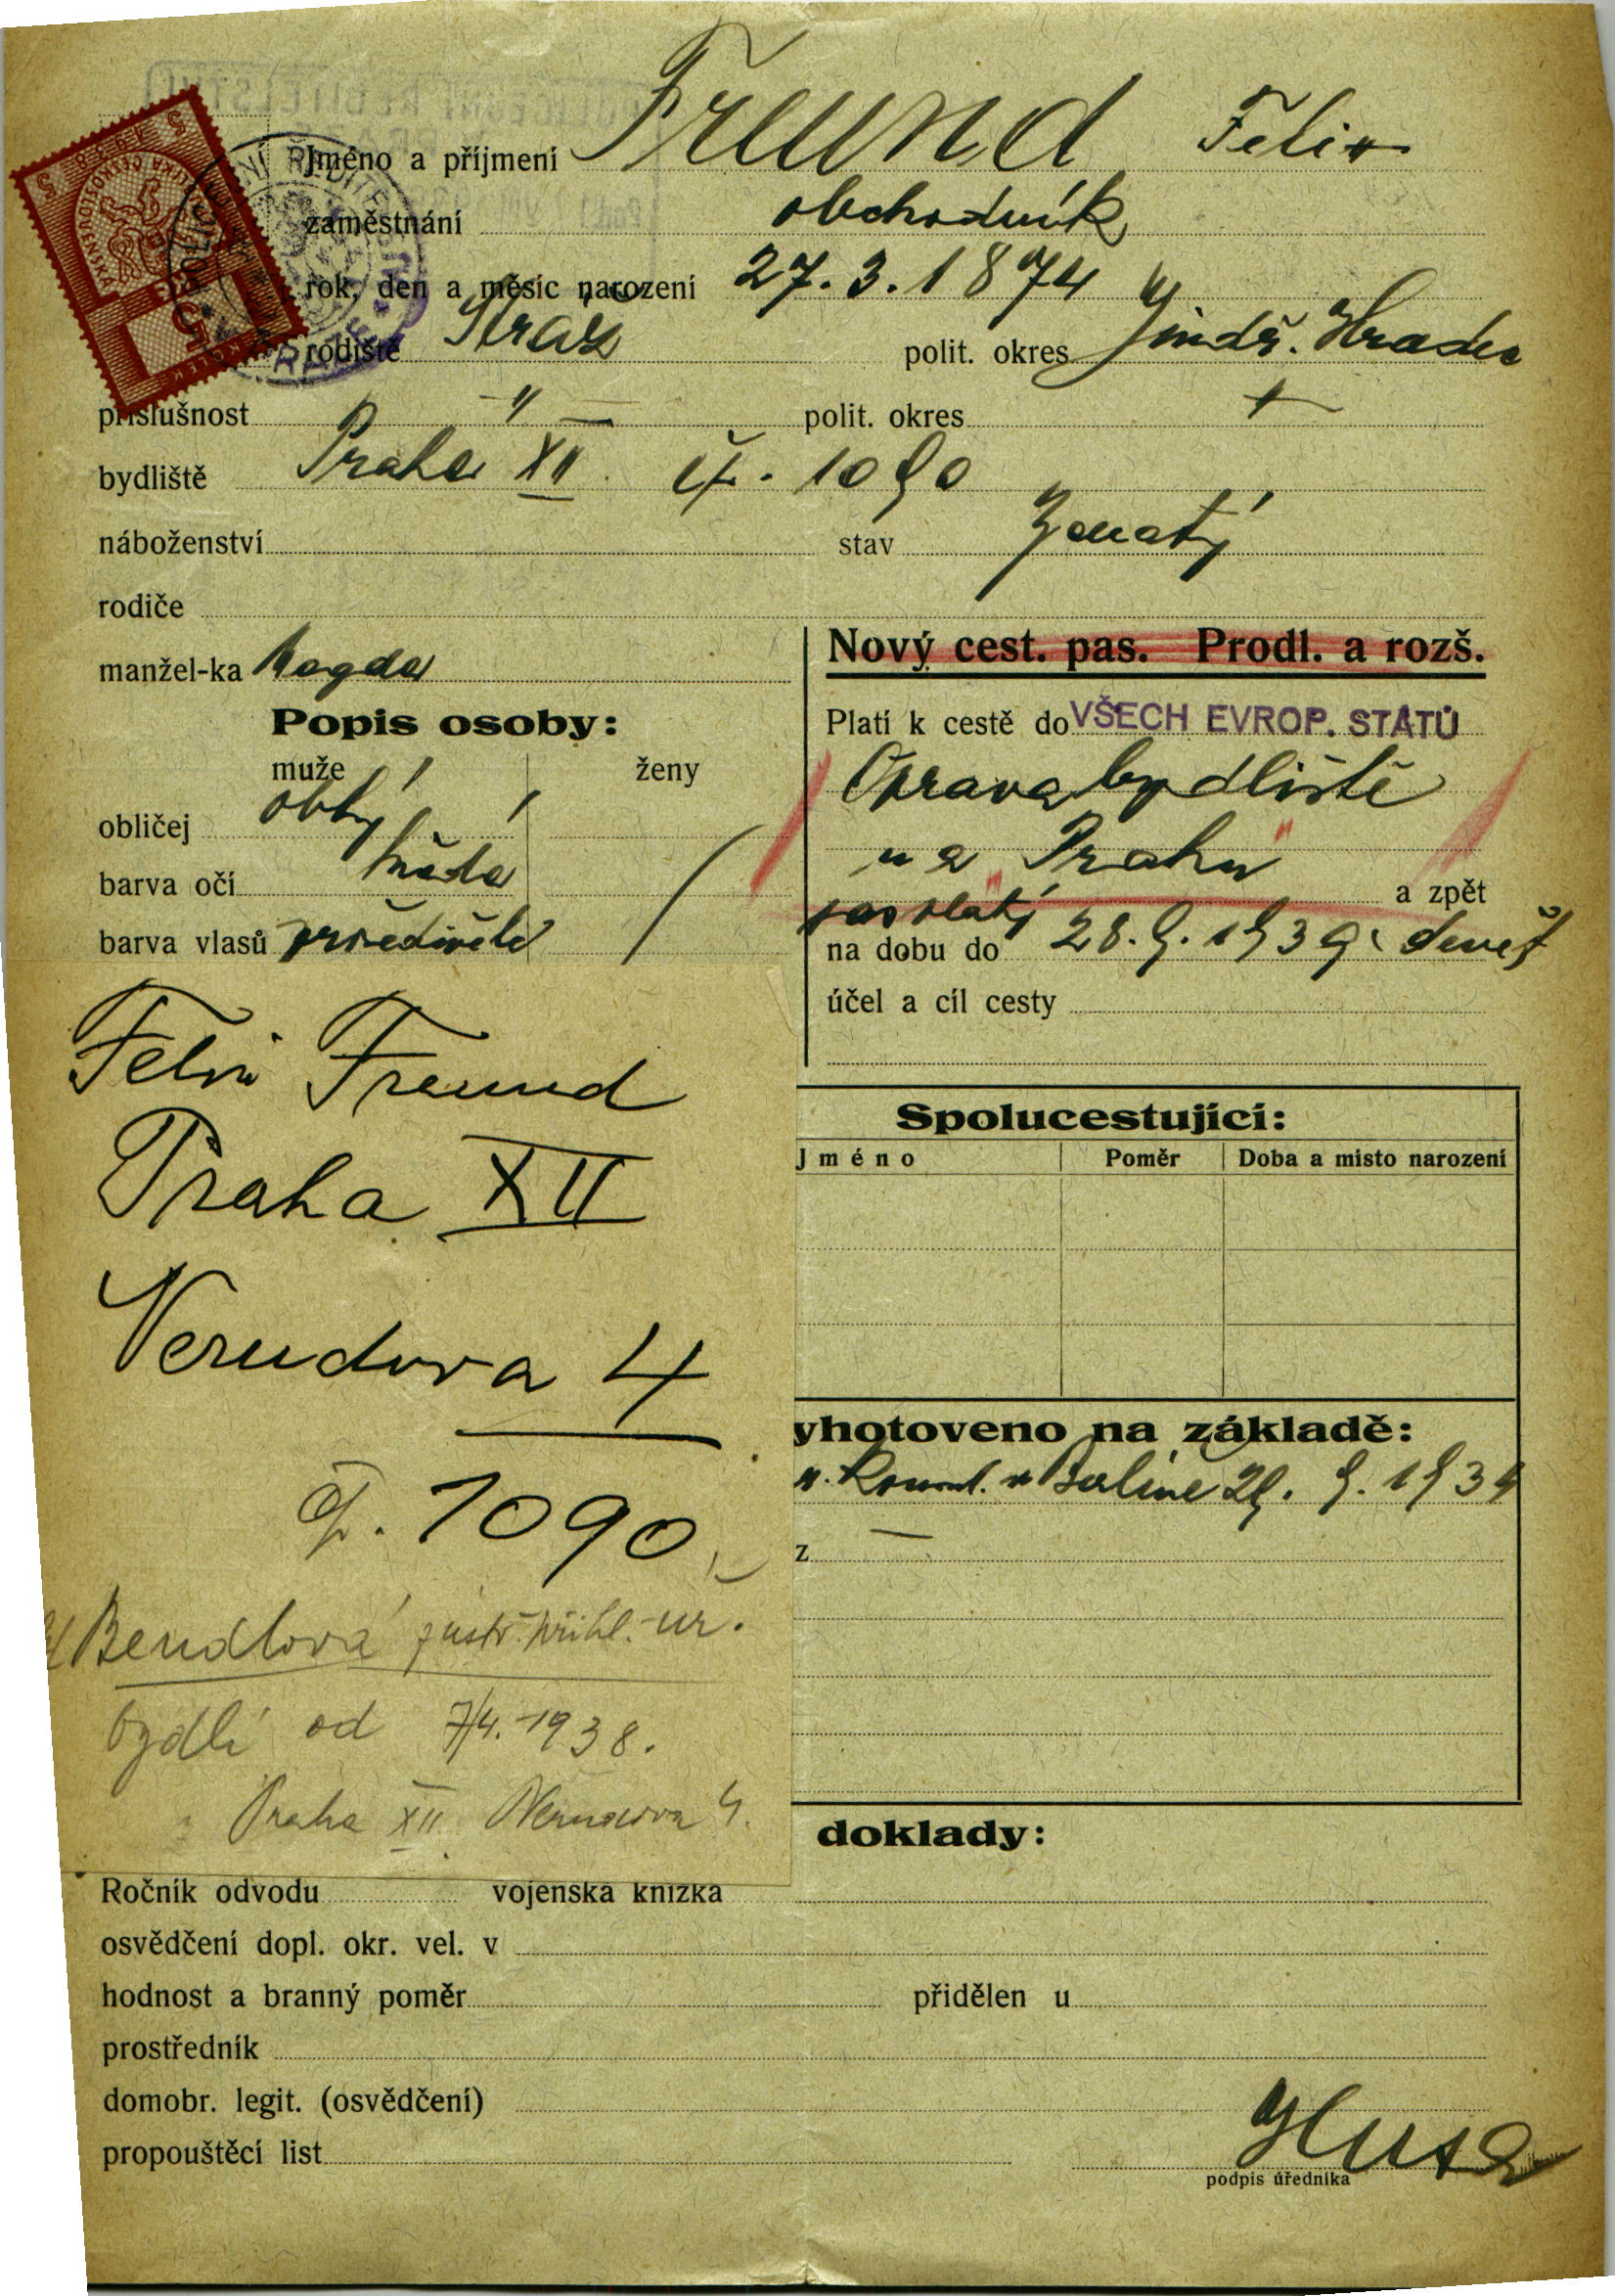 Jméno a příjmení Freund Felix
zaměstnání obchodník
rok, den a měsíc narození 27.3.1874
rodiště Stráž polit. okres Jindř. Hradec
příslušnost -"- polit. okres
bydliště Praha XII čp. 1090
náboženství stav ženatý
rodiče
manžel-ka Magda
Nový cest. pas. Prodl. a rozš.
Popis osoby:
Platí k cestě do VŠECH EVROP. STÁTŮ
muže ženy
Oprava bydliště
obličej oblý
na "Prahu"
barva očí hnědé
a zpět
pas platý
barva vlasů prošedivělé
na dobu do 28.9.1939 devět
účel a cíl cesty
Felix Freund
Praha XII
Nerudova 4
čp. 1090
Bendlová přihl. úř.
bydlí od 7/4. 1938.
Praha XII Nerudova 4.
Spolucestující:
Jméno Poměr Doba a místo narození
yhotoveno na základě:
Berlíně 29. 9. 1934
z
doklady:
Ročník odvodu vojenská knížka
osvědčení dopl. okr. vel. v
hodnost a branný poměr přidělen u
prostředník
domobr. legit. (osvědčení)
propouštěcí list
podpis úředníka